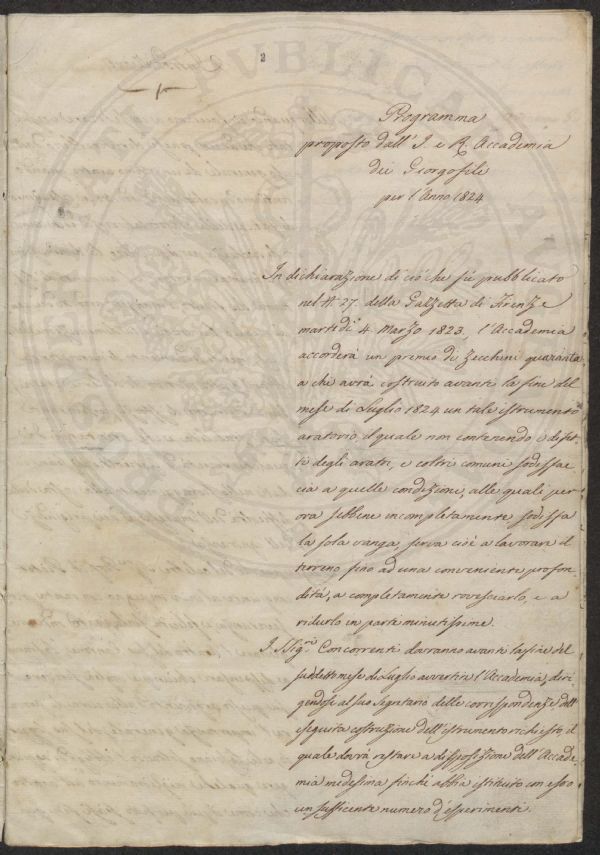 2
Programma
proposto dall' I. e R. Accademia
dei Georgofili
per l'Anno 1824
In dichiarazione di ciò che fù pubblicato
nel N. 27. della Gazzetta di Firenze
martedì 4 Marzo 1823, l'Accademia
accorderà un premio di zecchini quaranta
a chi avrà costruito avanti la fine del
mese di Luglio 1824 un tale istrumento
aratorio, il quale non contenendo i difet-
ti degli aratri, e coltri comuni sodisfac-
cia a quelle condizioni, alle quali per
ora sebbene incompletamente sodisfa
la sola vanga, serva cioè a lavorare il
terreno fino ad una conveniente profon-
dità, a completamente rovesciarlo, e a
ridurlo in parti minutissime.
I SSig.ri Concorrenti dovranno avanti la fine del
suddetto mese di Luglio avvertire l'Accademia, diri-
gendosi al suo Segretario delle corrispondenze dell'
eseguita costruzione dell'istrumento richiesto, il
quale dovrà restare a disposizione dell'Accade-
mia medesima finchè abbia istituito con esso
un sufficente numero d'esperimenti.